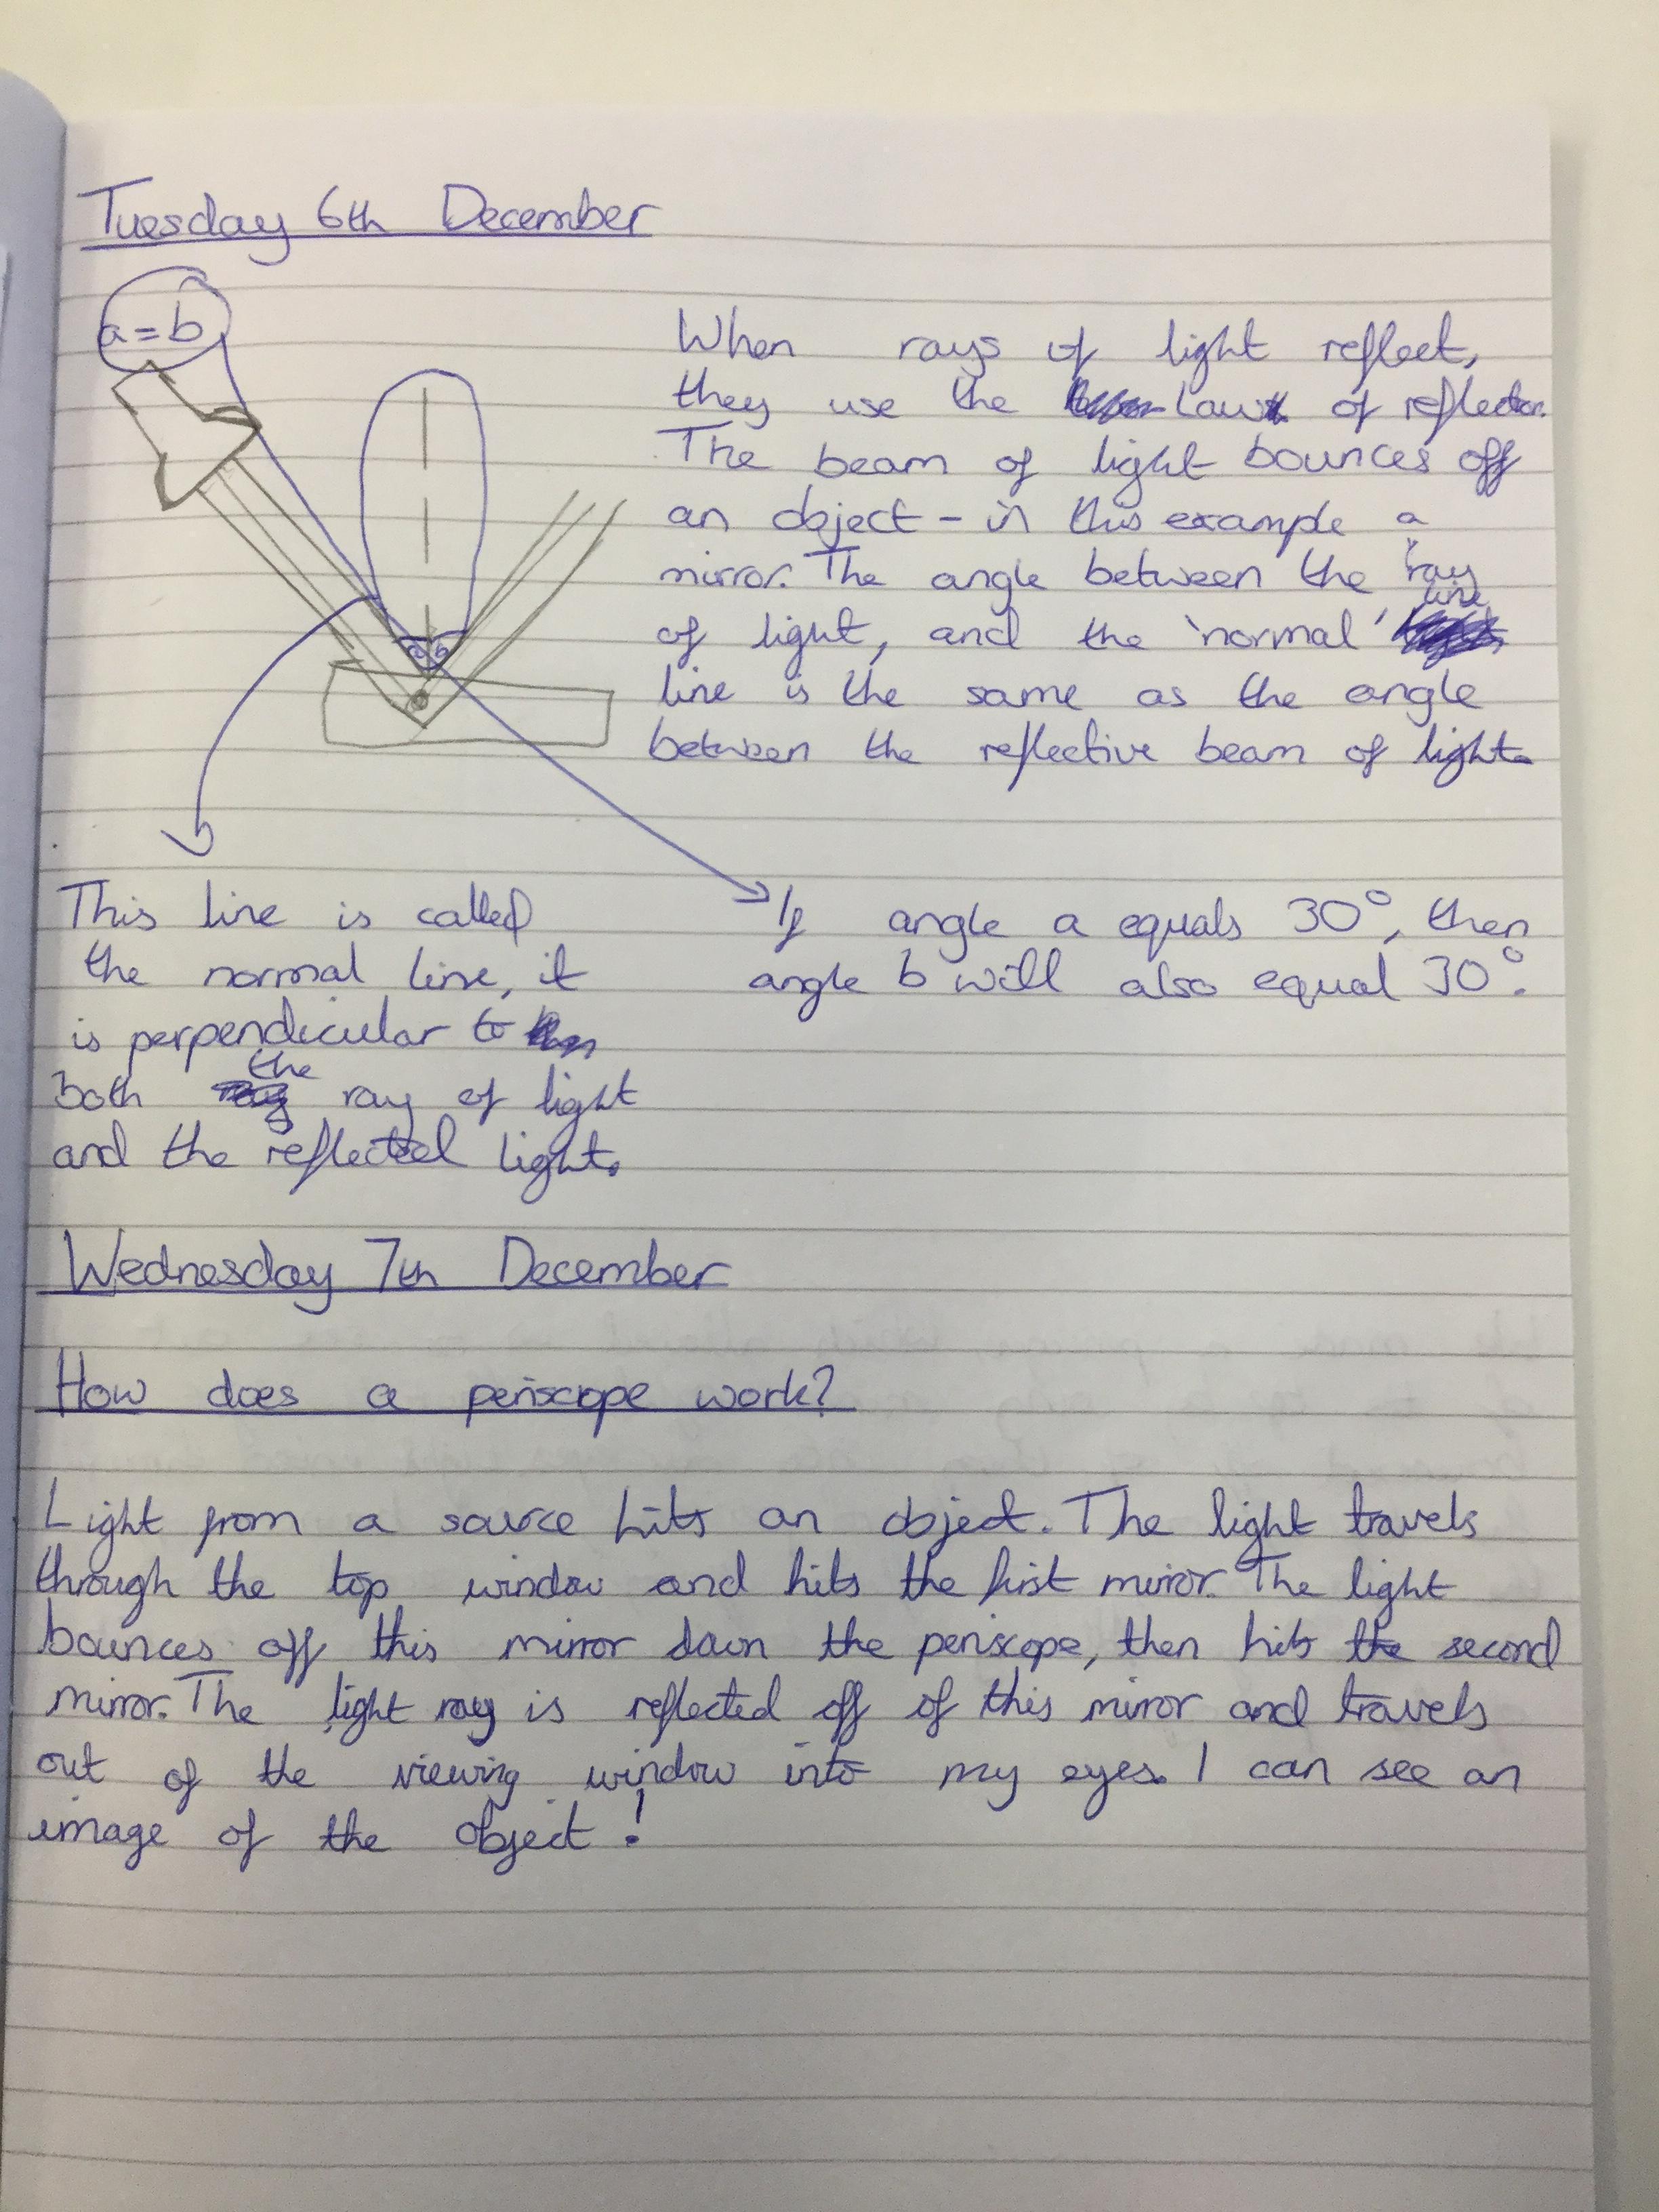 Tuesday 6th December
a = b
a b
When rays of light reflect,
they use the Law of reflection.
The beam of light bounces off
an object - in this example a
mirror. The angle between the ray
of light, and the 'normal' line
line is the same as the angle
between the reflective beam of light.
This line is called
the normal line, it
is perpendicular to
both the ray of light
and the reflected light.
If angle a equals 30°, then
angle b will also equal 30°.
Wednesday 7th December
How does a periscope work?
Light from a source hits an object. The light travels
through the top window and hits the first mirror. The light
bounces off this mirror down the periscope, then hits the second
mirror. The light ray is reflected off of this mirror and travels
out of the viewing window into my eyes. I can see an
image of the object!